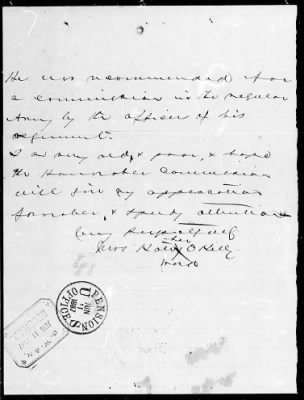 He was recommended for
a commission in the regular
Army by the officers of his
regiment.
I as very old, & poor, & hope
the Honorober Commission
will give my application
favorober, & speedy attention
Very Respectfully
her
Mrs Kate X O Kelly
mark
PENSION OFFICE
U
JUN
11
1887
JUN 11